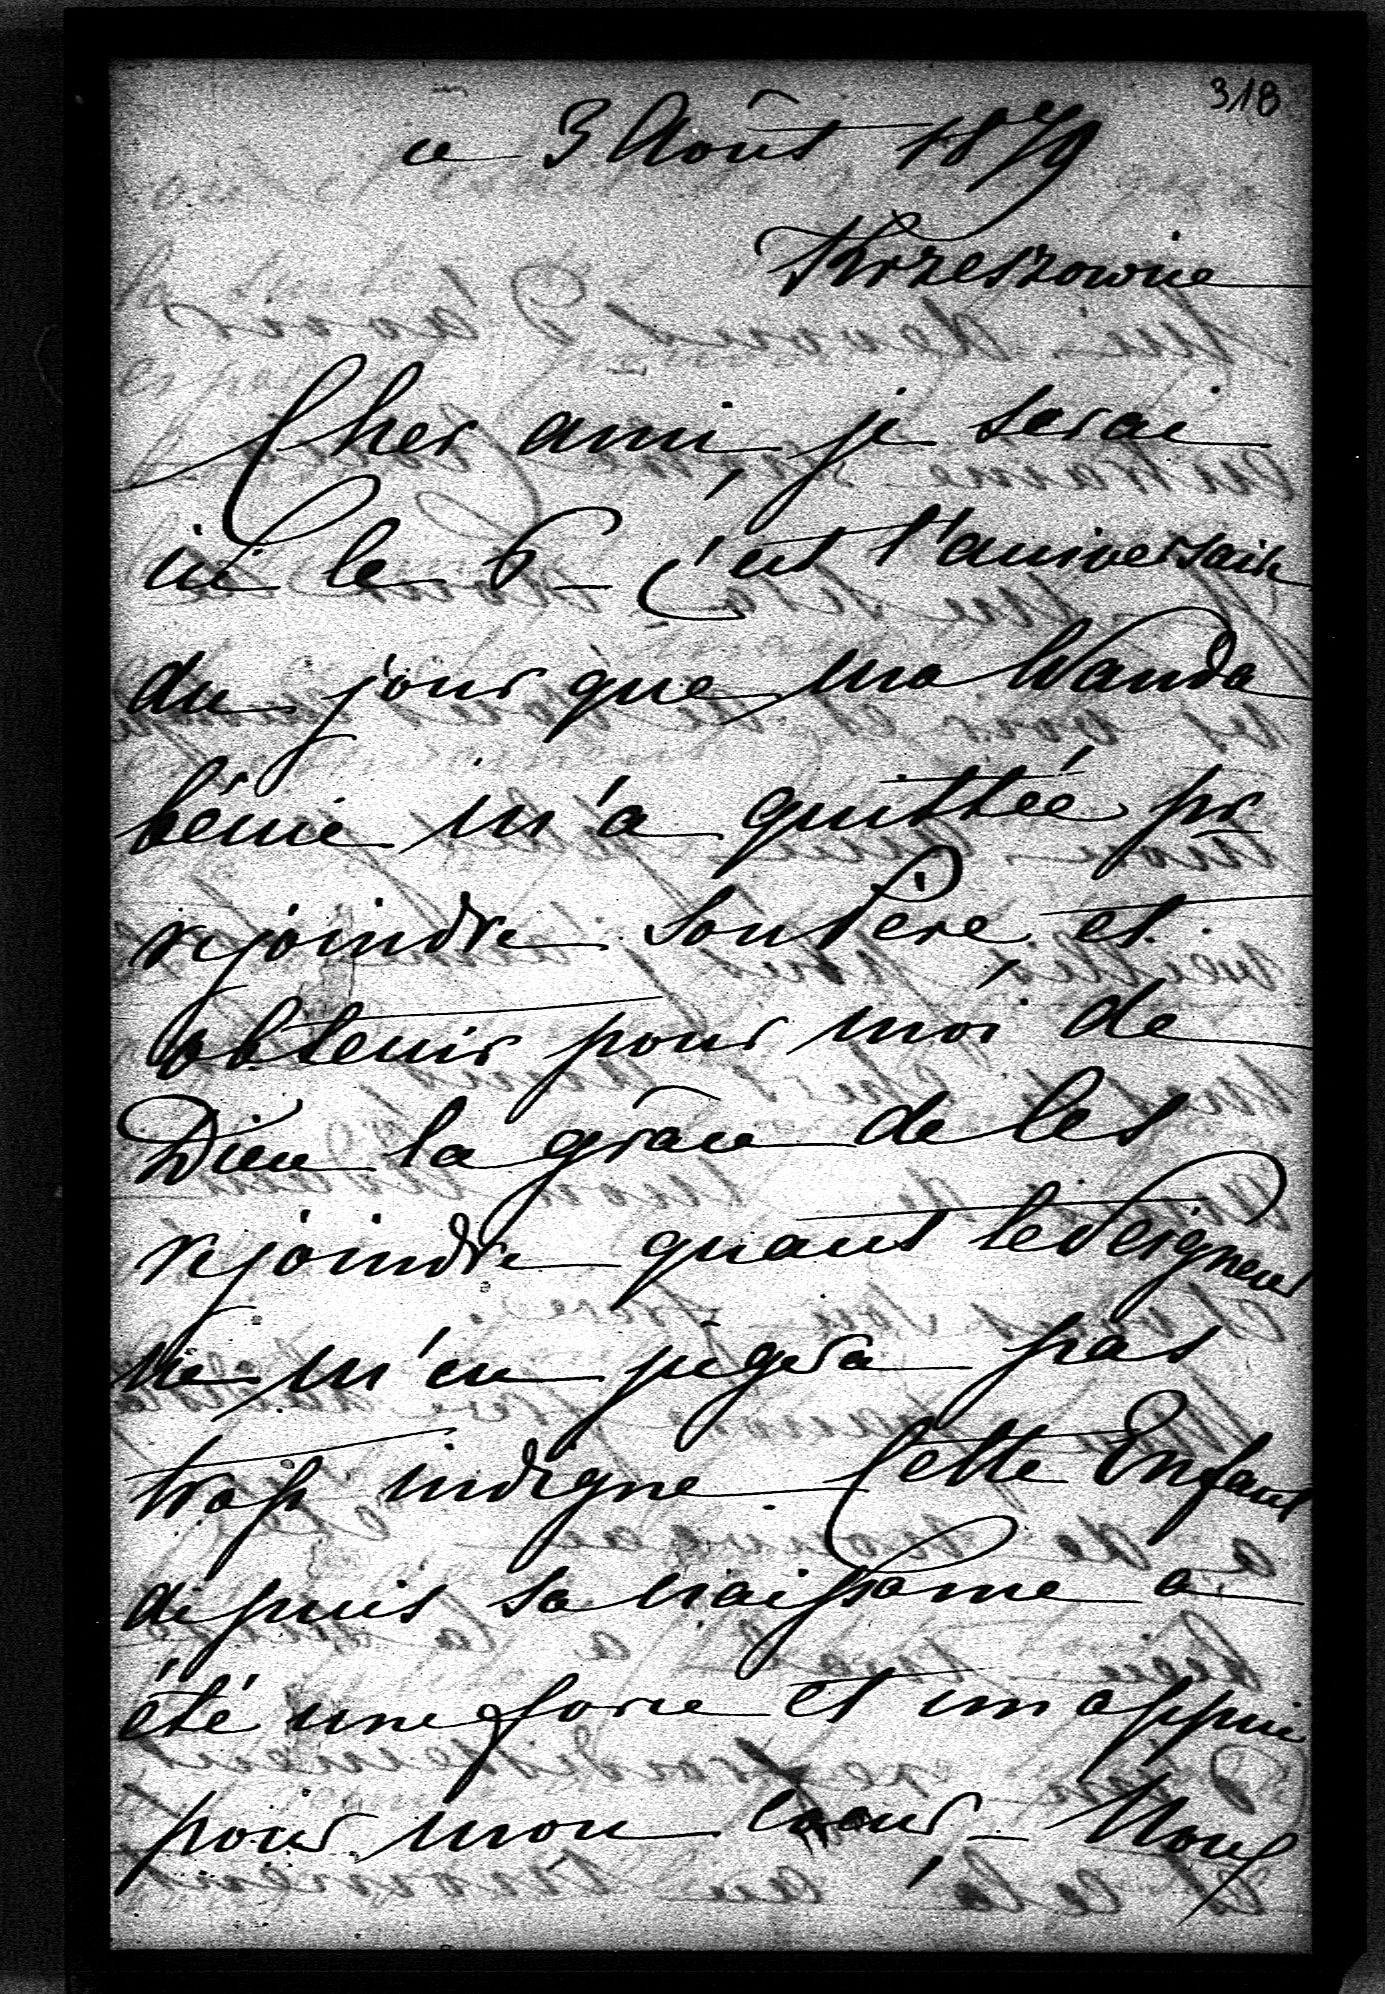 318
ce 3 Août 1879
Krzeszowice
Cher ami, je serai
ici le 6 – C'est l'aniversaire
du jour que ma Wanda
bénie m'a quittée pr
rejoindre son Père, et
obtenir pour moi de
Dieu la grâce de les
rejoindre quant le Seigneur
ne m'en jugera pas
trop indigne. Cette Enfant
depuis sa naissance a
été une force et un appui
pour mon Cœur – Nous